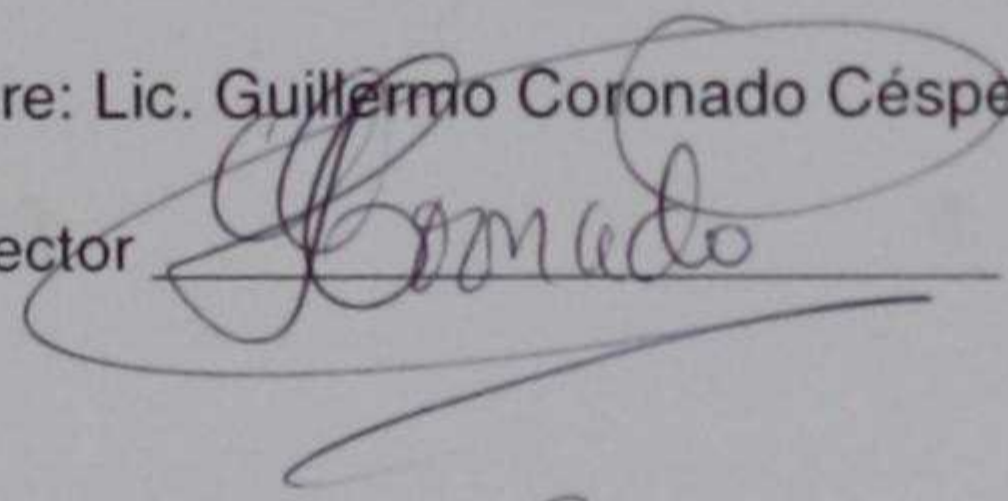 re: Lic. Guillermo Coronado Céspe
ector
Coronado